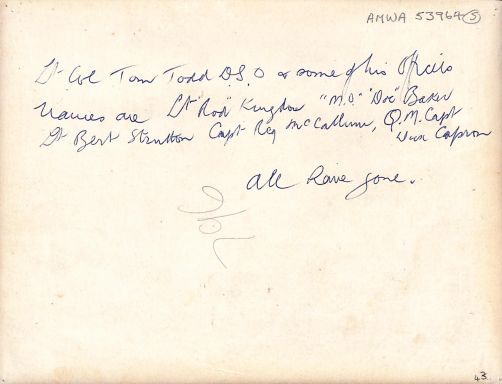 AMWA 53964 (5)
Lt Col Tom Todd D.S.O & some of his Officers
Names are Lt "Rod" Kingdon "M.O." "Doc" Baker
Lt Bert Strutton Capt Reg McCallum, Q.M. Capt
Capron
All have gone.
43